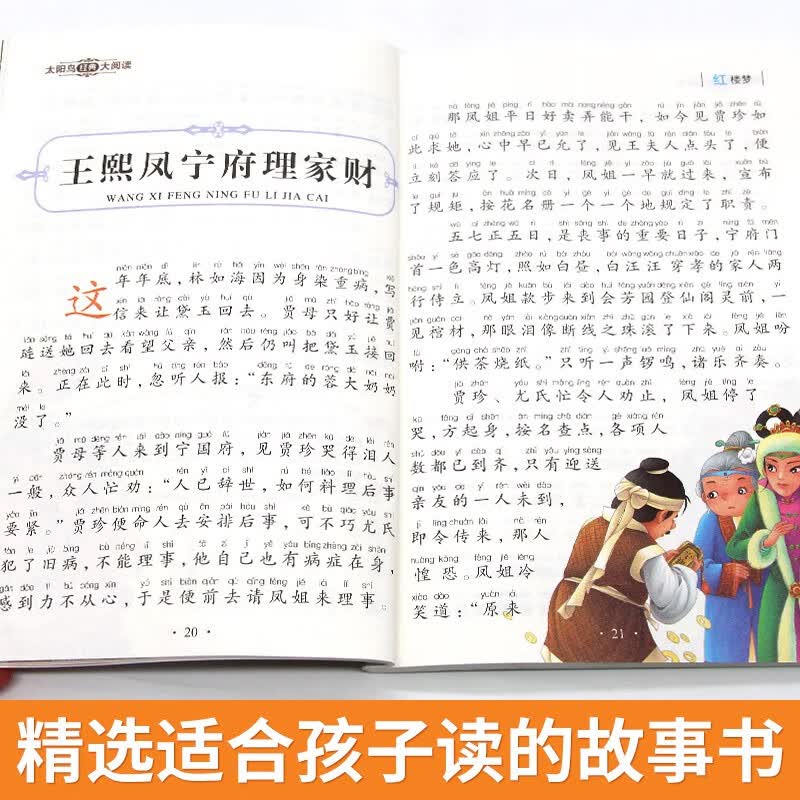 太阳鸟经典大阅读
王熙凤宁府理家财
WANG XI FENG NING FU LI JIA CAI
这年年底，林如海因为身染重病，写
信来让黛玉回去。贾母只好让贾
琏送她回去看望父亲，然后仍叫把黛玉接回
来。正在此时，忽听人报：“东府的蓉大奶奶
没了。”
贾母等人来到宁国府，见贾珍哭得泪人
一般，众人忙劝：“人已辞世，如何料理后事
要紧。”贾珍便命人去安排后事，可不巧尤氏
犯了旧病，不能理事，他自己也有病症在身，
感到力不从心，于是便前去请凤姐来理事。
·20·
红楼梦
那凤姐平日好卖弄能干，如今见贾珍如
此求她，心中早已允了，见王夫人点头了，便
立刻答应了。次日，凤姐一早就过来，宣布
了规矩，按花名册一个一个地规定了职责。
五七正五日，是丧事的重要日子，宁府门
首一色高灯，照如白昼，白汪汪穿孝的家人两
行侍立。凤姐款步来到会芳园登仙阁灵前，一
见棺材，那眼泪像断线之珠滚了下来。凤姐吩
咐：“供茶烧纸。”只听一声锣鸣，诸乐齐奏。
贾珍、尤氏忙令人劝止，凤姐停了
哭，方起身，按名查点，各项人
数都已到齐，只有迎送
亲友的一人未到，
即令传来，那人
惶恐。凤姐冷
笑道：“原来
·21·
精选适合孩子读的故事书